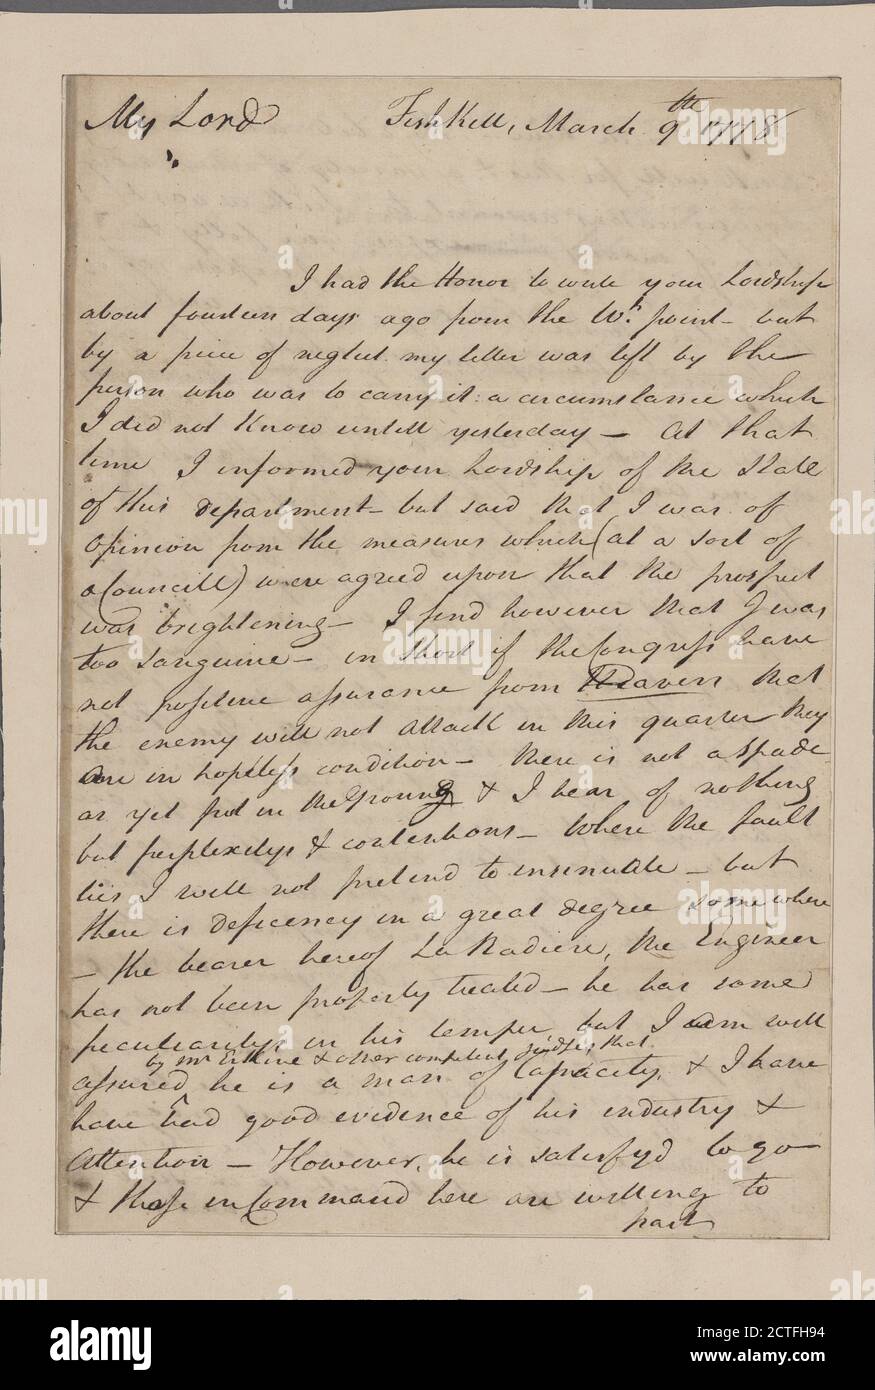 My Lord Fish Kill, March 9th 1778
I had the Honor to write your Lordship
about fourteen days ago from the Wt point - but
by a piece of neglect my letter was left by the
person who was to carry it: a circumstance which
I did not Know untill yesterday - At that
time I informed your Lordship of the State
of this department - but said that I was of
Opinion from the measures which (at a sort of
a Councill) were agreed upon that the prospect
was brightening - I find however that I was
too sanguine - in short if the Congress have
not positive assurance from Heaven that
the enemy will not attack in this quarter they
are in hopeless condition - there is not a Spade
as yet put in the Ground & I hear of nothing
but perplexitys & contentions - Where the fault
lies I will not pretend to insinuate - but
there is deficency in a great degree some where
- the bearer hereof La Radiere, the Engineer
has not been properly treated - he has some
peculiarity in his temper but I am well
by Mr Erskine & other competent judges that
assured he is a man of Capacity, & I have
have had good evidence of his industry &
Attention - However, he is satisfy'd to go
& those in Command here are willing to
part
alamy
Image ID: 2CTFH94
www.alamy.com